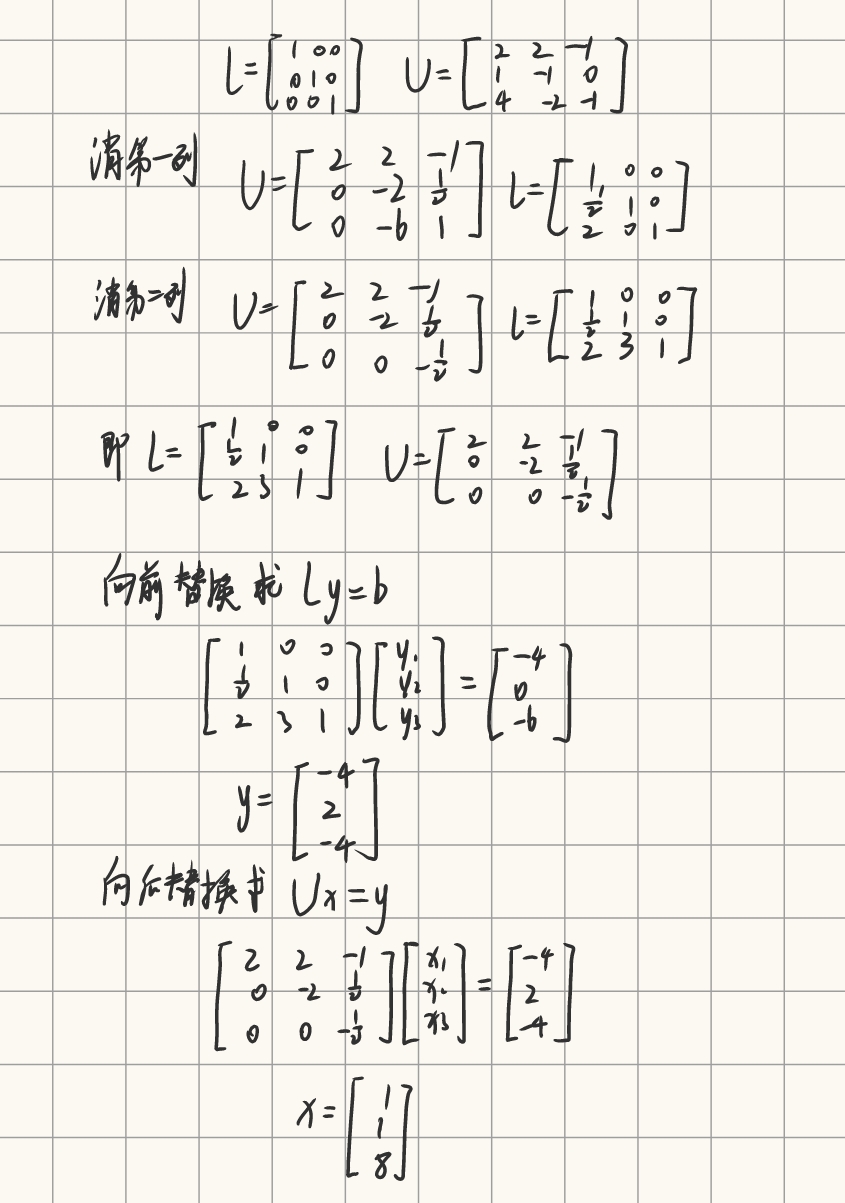 L = [1 0 0; 0 1 0; 0 0 1] U = [2 2 -1; 1 -1 0; 4 -2 -1]
消第一列 U = [2 2 -1; 0 -2 1/2; 0 -6 1] L = [1 0 0; 1/2 1 0; 2 0 1]
消第二列 U = [2 2 -1; 0 -2 1/2; 0 0 -1/2] L = [1 0 0; 1/2 1 0; 2 3 1]
即 L = [1 0 0; 1/2 1 0; 2 3 1] U = [2 2 -1; 0 -2 1/2; 0 0 -1/2]
向前替换求 Ly = b
[1 0 0; 1/2 1 0; 2 3 1] [y1; y2; y3] = [-4; 0; -6]
y = [-4; 2; -4]
向后替换求 Ux = y
[2 2 -1; 0 -2 1/2; 0 0 -1/2] [x1; x2; x3] = [-4; 2; -4]
x = [1; 1; 8]